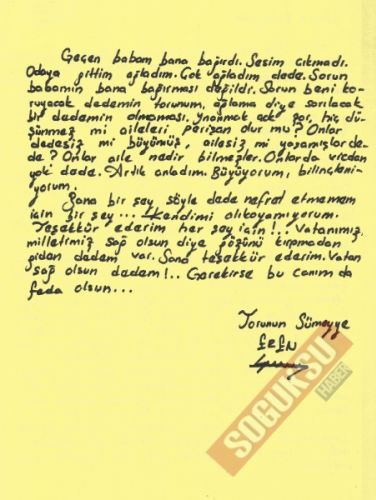 Geçen babam bana bağırdı. Sesim çıkmadı.
Odaya gittim ağladım. Çok ağladım dede. Sorun
babamın bana bağırması değildi. Sorun beni ko-
ruyacak dedemin torunum, ağlama diye sarılacak
bir dedemin olmaması. İnanmak acı
hiç dü-
şünmez mi aileleri perişan olur mu? Onlar
dedesiz mi büyümüş, ailesiz mi yaşamışlar de-
de? Onlar aile nedir bilmezler. Onlarda vicdan
yok dede. Artık anladım. Büyüyorum, bilinçleni-
yorum.
Bana bir şey söyle dede nefret etmemem
için bir şey... Kendimi alıkoyamıyorum.
Teşekkür ederim her şey için!... Vatanımız,
milletimiz sağ olsun diye gözünü kırpmadan
giden dedem var. Sana teşekkür ederim. Vatan
sağ olsun dedem!.. Gerekirse bu canım da
feda olsun...
Torunun Sümeyye
EREN
SOĞUKSU
HABER